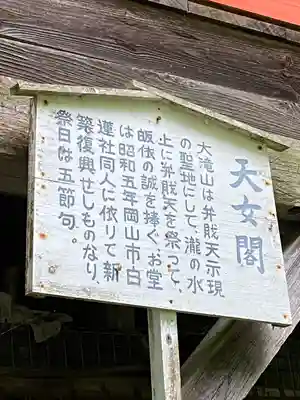 天女閣
大滝山は弁戝天示現
の聖地にして、瀧の水
上に弁戝天を祭って、
皈依の誠を捧ぐ。お堂
は昭和五年岡山市白
蓮社同人に依りて新
築復興せしものなり、
祭日は五節句。